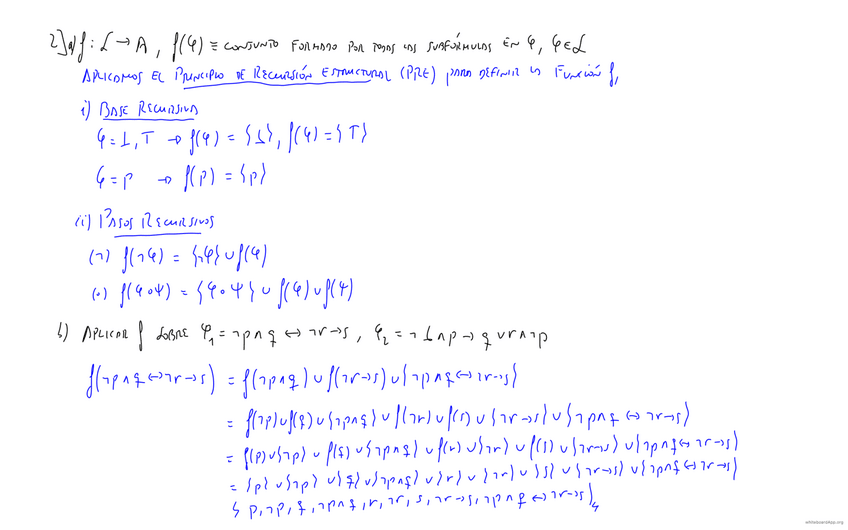 2] a) f: L → A, f(φ) ≡ CONJUNTO FORMADO POR TODAS LAS SUBFÓRMULAS EN φ, φ∈L
APLICAMOS EL PRINCIPIO DE RECURSIÓN ESTRUCTURAL (PRE) PARA DEFINIR LA FUNCIÓN f,
i) BASE RECURSIVA
φ = ⊥, T → f(φ) = {⊥}, f(φ) = {T}
φ = p → f(p) = {p}
ii) PASOS RECURSIVOS
(¬) f(¬φ) = {¬φ} ∪ f(φ)
(∘) f(φ∘ψ) = {φ∘ψ} ∪ f(φ) ∪ f(ψ)
b) APLICAR f SOBRE φ₁ = ¬p∧q ↔ ¬r→s, φ₂ = ¬⊥∧p → q∨r∧¬p
f(¬p∧q↔¬r→s) = f(¬p∧q) ∪ f(¬r→s) ∪ {¬p∧q↔¬r→s}
= f(¬p) ∪ f(q) ∪ {¬p∧q} ∪ f(¬r) ∪ f(s) ∪ {¬r→s} ∪ {¬p∧q ↔ ¬r→s}
= f(p) ∪ {¬p} ∪ f(q) ∪ {¬p∧q} ∪ f(r) ∪ {¬r} ∪ f(s) ∪ {¬r→s} ∪ {¬p∧q↔¬r→s}
= {p} ∪ {¬p} ∪ {q} ∪ {¬p∧q} ∪ {r} ∪ {¬r} ∪ {s} ∪ {¬r→s} ∪ {¬p∧q↔¬r→s}
{p, ¬p, q, ¬p∧q, r, ¬r, s, ¬r→s, ¬p∧q ↔ ¬r→s}
whiteboardapp.org